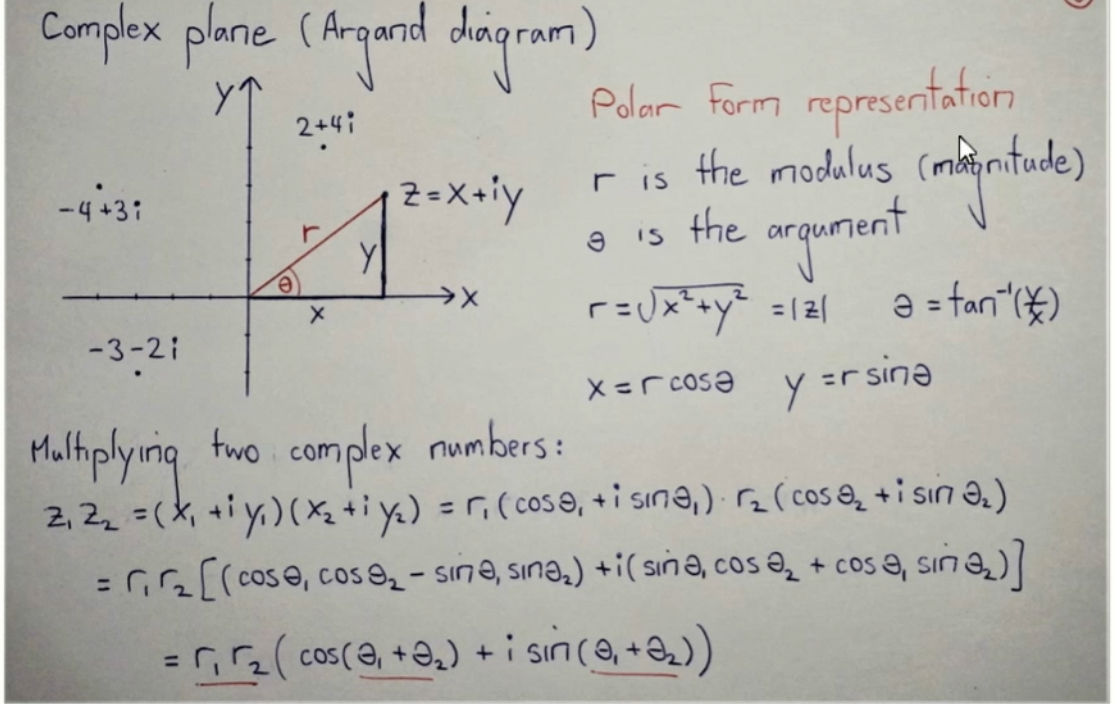 Complex plane (Argand diagram)
y
2+4i
-4+3i
z=x+iy
r
y
θ
x
x
-3-2i
Polar Form representation
r is the modulus (magnitude)
θ is the argument
r=√x²+y² =|z| θ=tan⁻¹(y/x)
x=rcosθ y=rsinθ
Multiplying two complex numbers:
z₁z₂=(x₁+iy₁)(x₂+iy₂)=r₁(cosθ₁+i sinθ₁)·r₂(cosθ₂+i sinθ₂)
=r₁r₂[(cosθ₁cosθ₂-sinθ₁sinθ₂)+i(sinθ₁cosθ₂+cosθ₁sinθ₂)]
=r₁r₂(cos(θ₁+θ₂)+i sin(θ₁+θ₂))